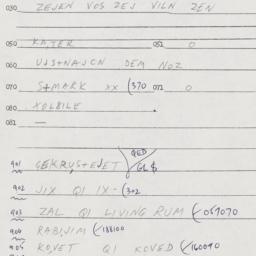 030 ZEJEN VOS ZEJ VILN ZEN
050 KATER 051 0
060 UJS+NAJCN DEM NOZ
070 S+MARK XX (370 071 0
080 XOLBILE
081 —
QED
901 GEKRUS+EJET GL$
902 JIX QI IX- (302
903 ZAL QI LIVING RUM (059070
904 RABJIM (188100
905 KOVET QI KOVED (160090